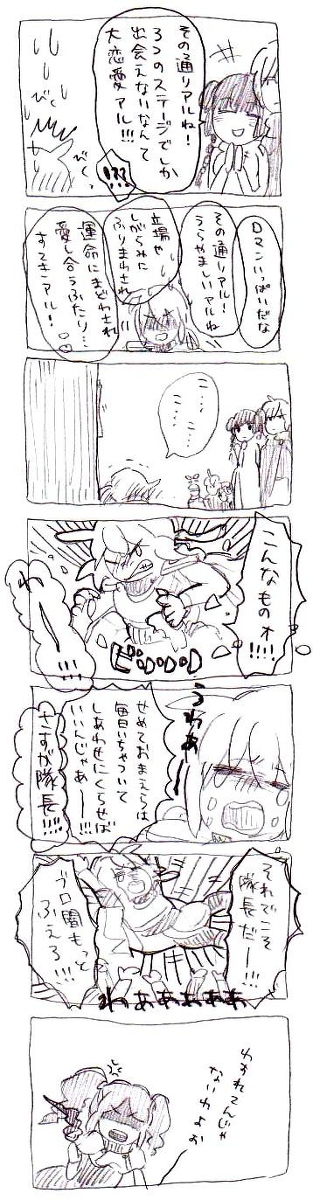 その通りアルね!
3つのステージでしか
出会えないなんて
大恋愛アル!!!
!???
びくっ
びくっ
ロマンいっぱいだな
その通りアル!
うらやましいアルね
立場や
しがらみに
ふりまわされ
運命にまどわされ
愛し合うふたり…
すてきアル!
こ…
こ…
こんなものォ!!!!
ビリリリリ
わーーー!!!!
うわぁーー
せめておまえらは
毎日いちゃついて
しあわせにくらせば
いいんじゃあー!!!
さすが隊長!!!!
それでこそ
隊長だー!!!!
ブロ闇もっと
ふえろ!!!
わあああああああ
わすれてんじゃ
ないわよぉ